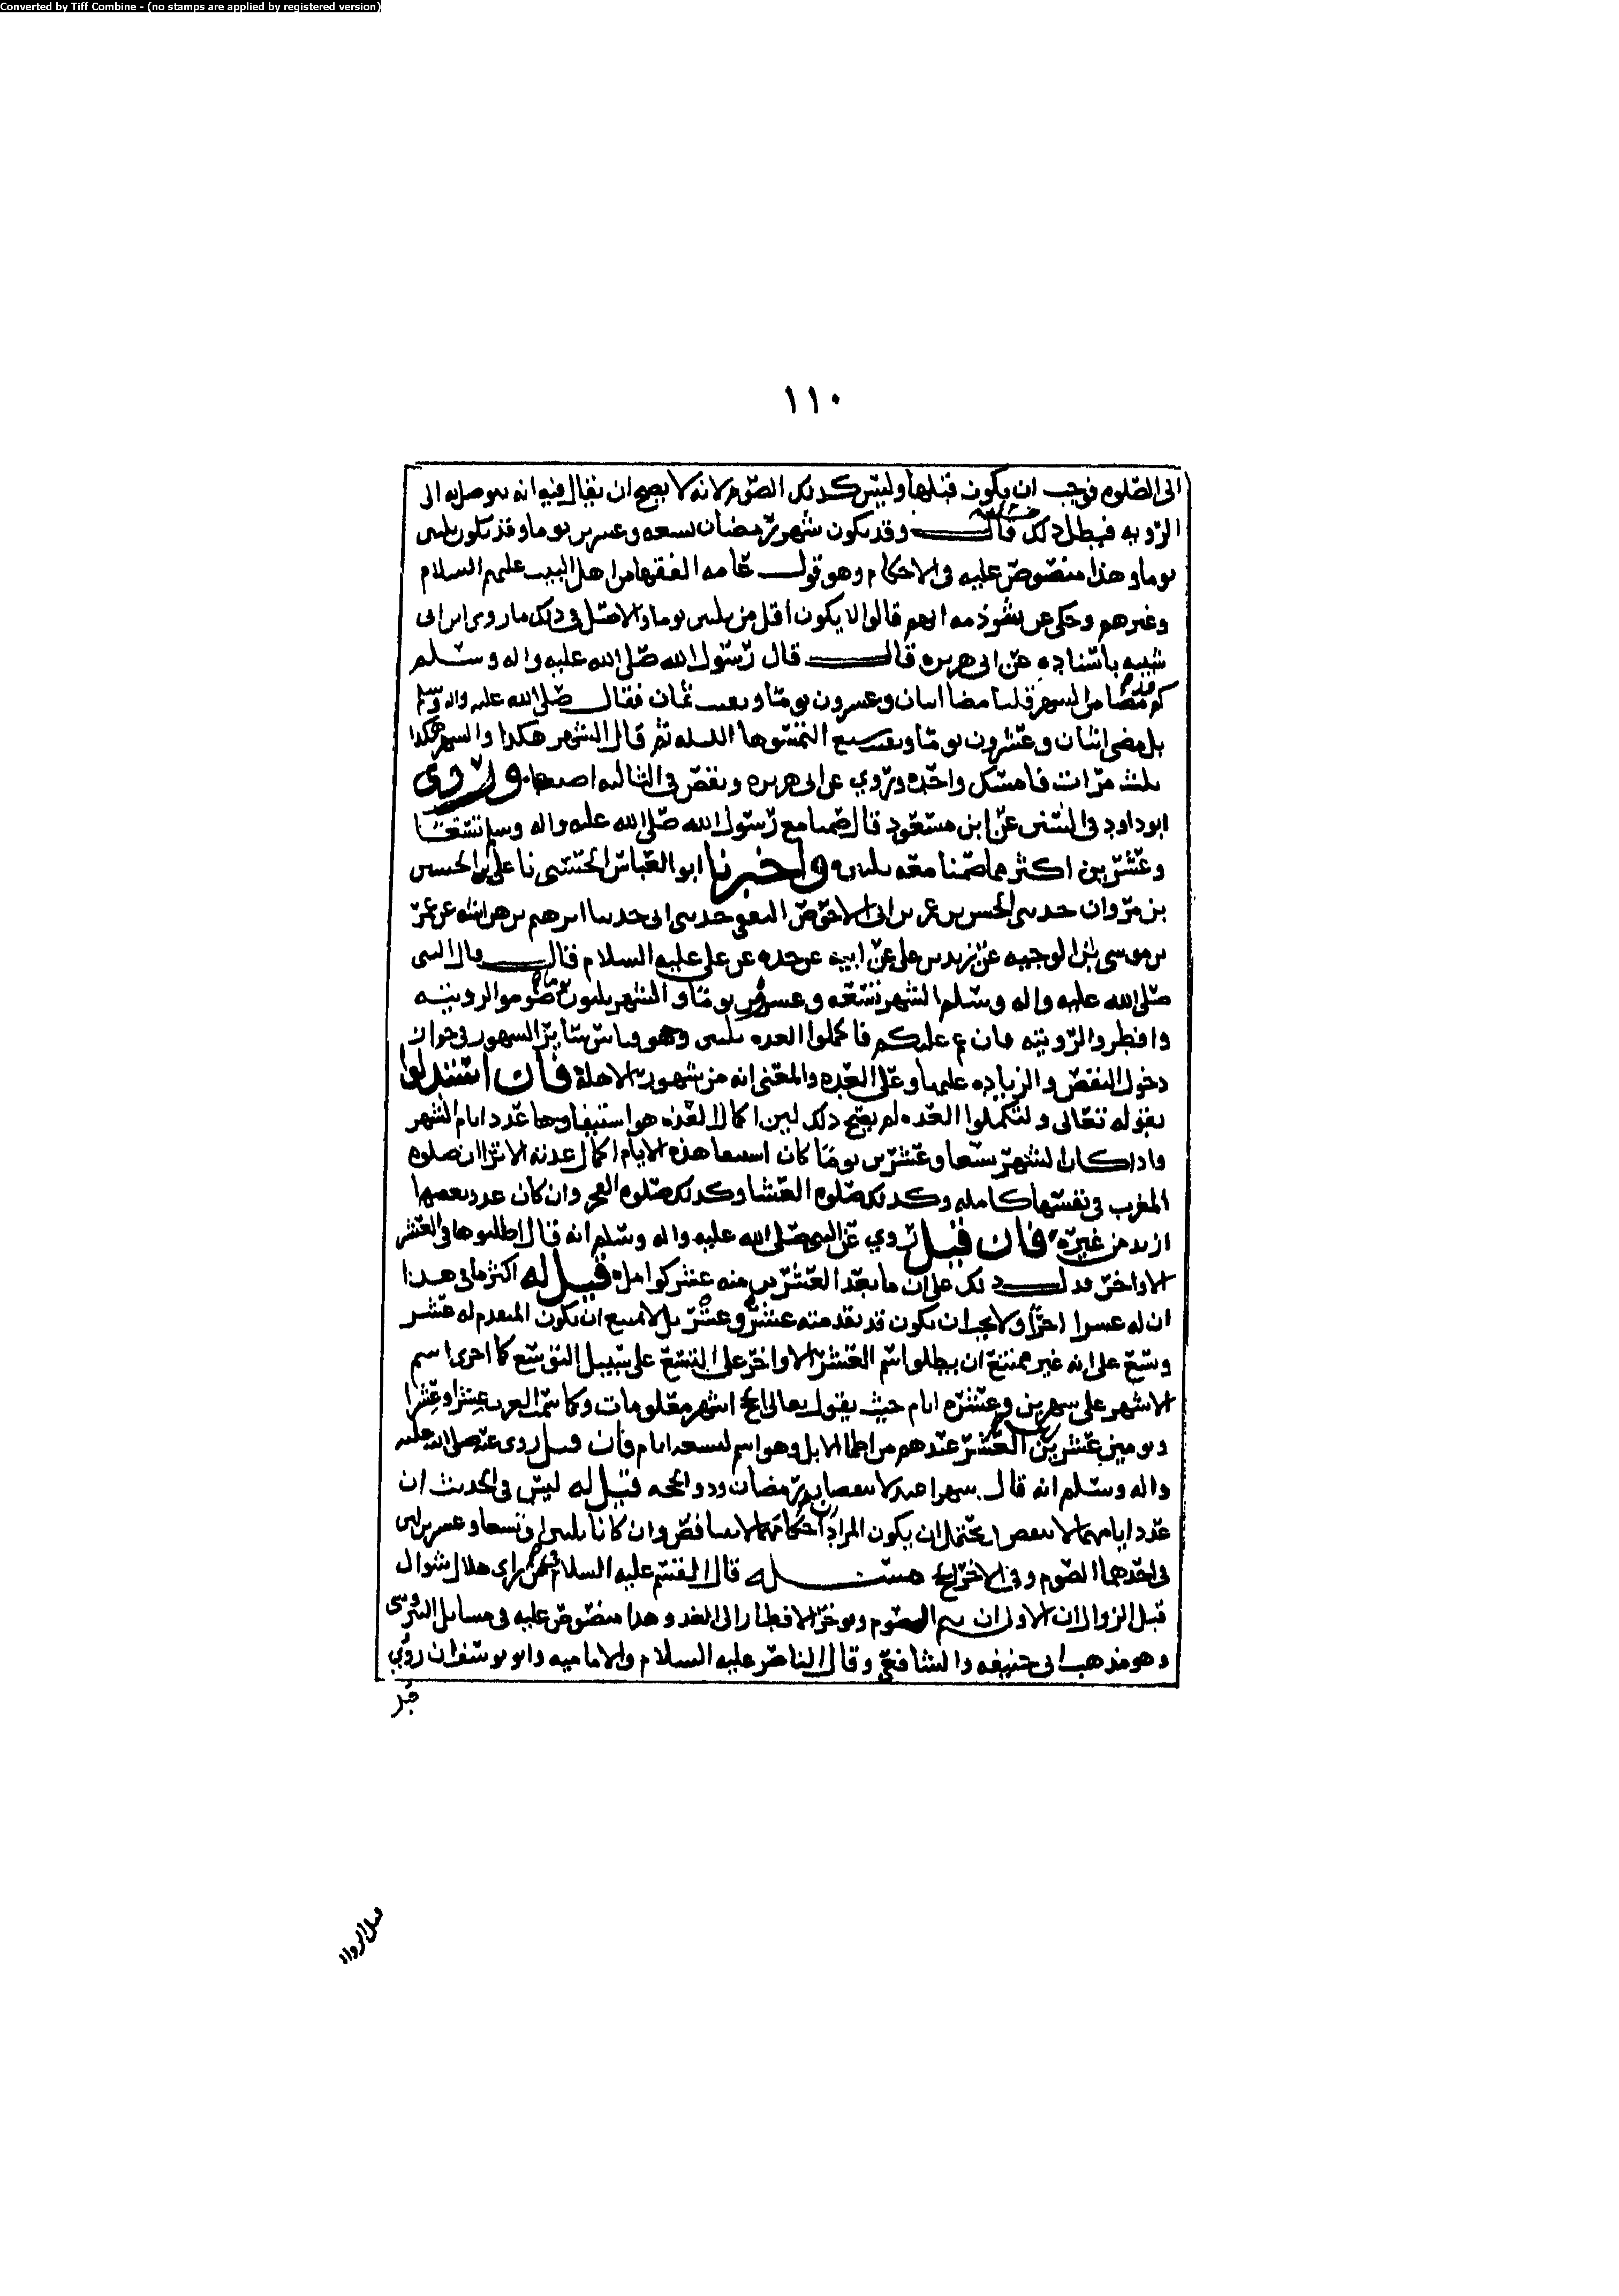 Converted by Tiff Combine - (no stamps are applied by registered version)
١١٠
الى الصلوه فوجب ان يكون قبلها وليس كذلك الصوم لانه لا يصح ان يقال فيه انه يتوصل به الى
الرويه فبطل ذلك قال وقد يكون شهر رمضان تسعه وعشرين يوما وقد يكون ثلثين
يوما وهذا منصوص عليه في الاحكام وهو قول عامه الفقها من اهل البيت عليهم السلام
وغيرهم وحكي عن شرذمه انهم قالوا لا يكون اقل من ثلثين يوما والاصل في ذلك ما روى ابن ابي
شيبه باسناده عن ابي هريره قال قال رسول الله صلى الله عليه واله وسلم
كم مضا من الشهر قلنا مضا اثنان وعشرون يوما وبقيت ثمان فقال صلى الله عليه واله وسلم
بل مضى اثنان وعشرون يوما وبقيت سبع التمسوها الليله ثم قال الشهر هكذا والشهر هكذا
ثلث مرات فامسك واحده وروي عن ابي هريره ونقص في الثالثه اصبعا وروى
ابو داود في السنن عن ابن مسعود قال صمنا مع رسول الله صلى الله عليه واله وسلم تسعا
وعشرين اكثر مما صمنا معه ثلثين واخبرنا ابو العباس الحسني نا علي بن الحسن
بن مروان حدثني الحسن بن عن ابي حدثنا ابرهيم بن هراسه عن عمر
بن موسى بن الوجيه عن زيد بن علي عن ابيه عن جده عن علي عليه السلام فقال قال النبي
صلى الله عليه واله وسلم الشهر تسعه وعشرون يوما والشهر ثلثون يوما صوموا لرويته
وافطروا لرويته فان غم عليكم فاكملوا العده ثلثين وهو قياس سائر الشهور في جواز
دخول النقص والزياده عليها وعلى العده والمعنى انه من شهور الاهله فان استدلوا
بقوله تعالى ولتكملوا العده لم يصح ذلك لان اكمال العده هو استيفاوها عدد ايام الشهر
واذا كان الشهر تسعا وعشرين يوما كان استيفا هذه الايام اكمال عدته الا ترا ان صلوه
المغرب في نفسها كامله وكذلك صلوه العشا وكذلك صلوه الفجر وان كان عدد بعضها
ازيد من غيره فان قيل روي عن النبي صلى الله عليه واله وسلم انه قال اطلبوها في العشر
الاواخر فدل ذلك على ان ما بعد العشرين منه عشر كوامل قيل له اكثر ما في هذا
ان له عشرا اخرا ولا يجب ان يكون قد تقدمته عشر وعشر بل لا يمنع ان يكون المتقدم له عشر
وتسع على انه غير ممتنع ان يطلق اسم العشر الاواخر على التسع على سبيل التوسع كما اجرى اسم
الاشهر على شهرين وعشره ايام حيث يقول تعالى الحج اشهر معلومات وكما سمت العرب عشرا وعشرا
ويومين عشرين العشر عندهم من اظما الابل وهو اسم لتسعه ايام فان قيل روى عنه صلى الله عليه
واله وسلم انه قال شهرا عيد لا ينقصان رمضان وذو الحجه قيل له ليس في الحديث ان
عدد ايامهما لا ينقص يحتمل ان يكون المراد احكامهما لا يتناقص وان كانا ثلثين او تسعا وعشرين لان
في احدهما الصوم وفي الاخر الحج مسئله قال القسم عليه السلام فيمن راى هلال شوال
قبل الزوال ان الاولى ان يتم الصوم ويوخر الافطار الى الغد وهذا منصوص عليه في مسائل النيروسي
وهو مذهب ابي حنيفه والشافعي وقال الناصر عليه السلام والاماميه وابو يوسف ان روي
قبل
قبل الزوال